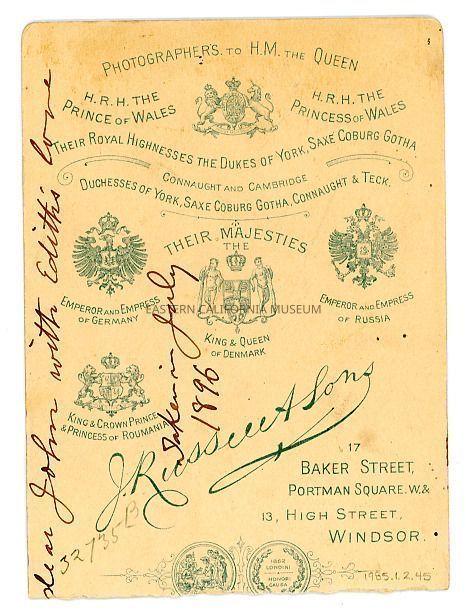 PHOTOGRAPHERS. TO H.M. THE QUEEN
H.R.H. THE
PRINCE OF WALES
H.R.H. THE
PRINCESS OF WALES
THEIR ROYAL HIGHNESSES THE DUKES OF YORK, SAXE COBURG GOTHA
CONNAUGHT AND CAMBRIDGE
DUCHESSES OF YORK, SAXE COBURG GOTHA, CONNAUGHT & TECK.
THEIR MAJESTIES
THE
EMPEROR AND EMPRESS
OF GERMANY
KING & QUEEN
OF DENMARK
EMPEROR AND EMPRESS
OF RUSSIA
EASTERN CALIFORNIA MUSEUM
KING & CROWN PRINCE
& PRINCESS OF ROUMANIA
J. Russell & Sons
17
BAKER STREET,
PORTMAN SQUARE. W. &
13, HIGH STREET,
WINDSOR.
1862
LONDINI
HONORIS
CAUSA
dear John with Edith's love
Taken in July
1896
52735B
1985.1.2.45